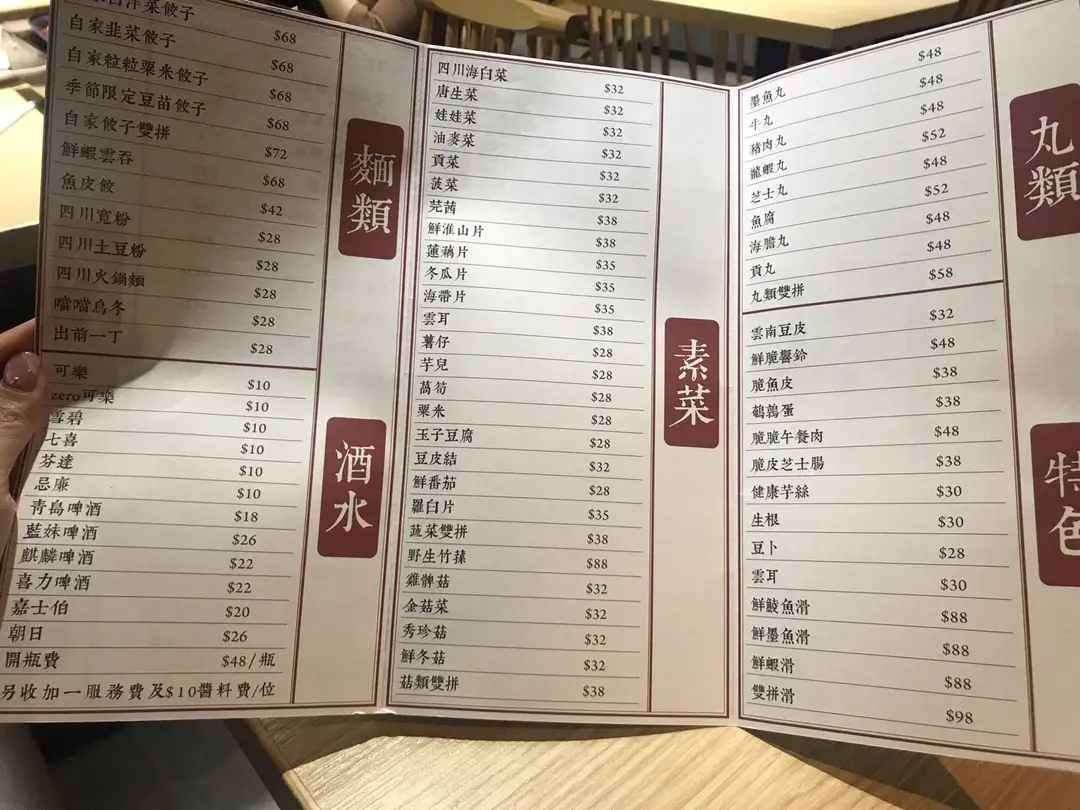 白洋菜餃子 $68
自家韭菜餃子 $68
自家粒粒粟米餃子 $68
季節限定豆苗餃子 $68
自家餃子雙拼 $72
鮮蝦雲吞 $68
魚皮餃 $42
四川寬粉 $28
四川土豆粉 $28
四川火鍋麵 $28
噹噹烏冬 $28
出前一丁 $28
麵類
可樂 $10
zero可樂 $10
雪碧 $10
七喜 $10
芬達 $10
忌廉 $10
青島啤酒 $18
藍妹啤酒 $26
麒麟啤酒 $22
喜力啤酒 $22
嘉士伯 $20
朝日 $26
開瓶費 $48/瓶
另收加一服務費及$10醬料費/位
酒水
四川海白菜 $32
唐生菜 $32
娃娃菜 $32
油麥菜 $32
貢菜 $32
菠菜 $32
芫茜 $38
鮮淮山片 $38
蓮藕片 $35
冬瓜片 $35
海帶片 $35
雲耳 $38
薯仔 $28
芋兒 $28
萵筍 $28
粟米 $28
玉子豆腐 $28
豆皮結 $32
鮮番茄 $28
羅白片 $35
蔬菜雙拼 $38
野生竹蓀 $88
雞髀菇 $32
金菇菜 $32
秀珍菇 $32
鮮冬菇 $32
菇類雙拼 $38
素菜
墨魚丸 $48
牛丸 $48
豬肉丸 $48
龍蝦丸 $52
芝士丸 $48
魚腐 $52
海膽丸 $48
貢丸 $48
丸類雙拼 $58
丸類
雲南豆皮 $32
鮮脆響鈴 $48
脆魚皮 $38
鵪鶉蛋 $38
脆脆午餐肉 $48
脆皮芝士腸 $38
健康芋絲 $30
生根 $30
豆卜 $28
雲耳 $30
鮮鯪魚滑 $88
鮮墨魚滑 $88
鮮蝦滑 $88
雙拼滑 $98
特色